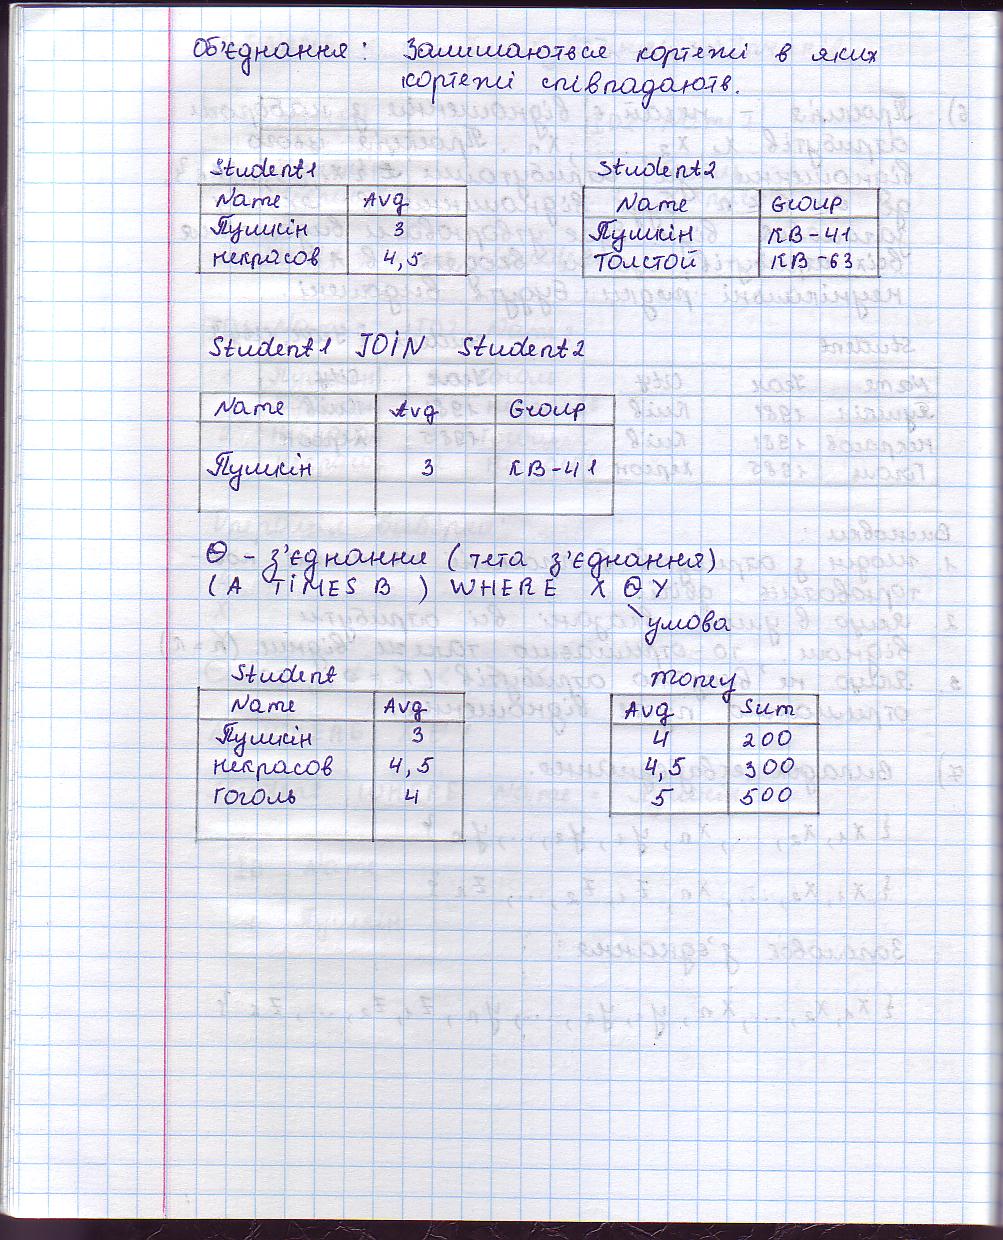 Об'єднання: Залишаються кортежі в яких
кортежі співпадають.
Student1
Name Avg
Пушкін 3
некрасов 4,5
Student2
Name Group
Пушкін КВ-41
Толстой КВ-63
Student1 JOIN Student2
Name Avg Group
Пушкін 3 КВ-41
Θ - з'єднання (тета з'єднання)
(A TIMES B) WHERE X Θ Y
умова
Student
Name Avg
Пушкін 3
некрасов 4,5
гоголь 4
money
Avg Sum
4 200
4,5 300
5 500